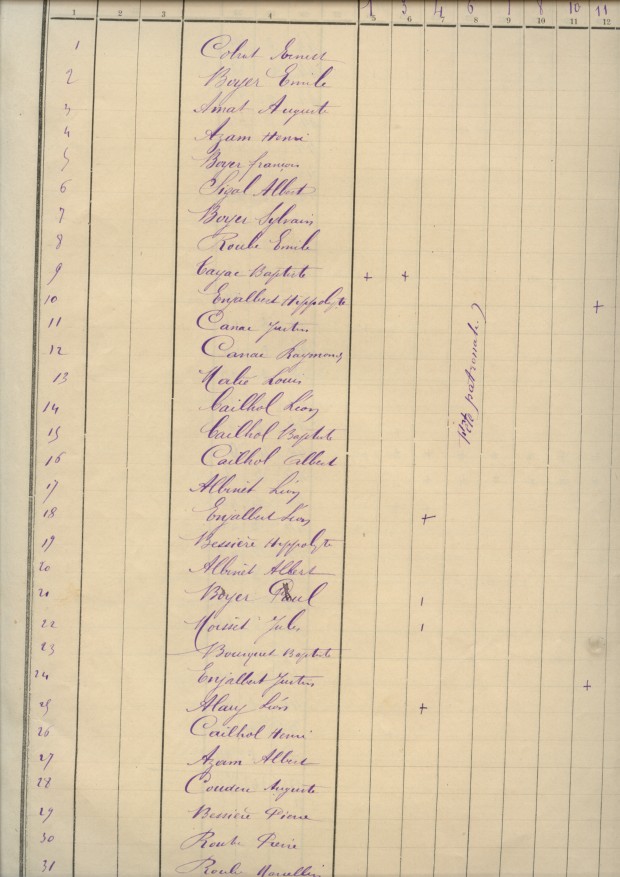 1 3 4 6 7 8 10 11
1 2 3 4 5 6 7 8 9 10 11 12
1 Ernest
2 Boyer Emile
3 Amat Auguste
4 Azam Henri
5 Boyer françois
6 Sigal Albert
7 Boyer Sylvain
8 Roube Emile
9 Cayac Baptiste + +
10 Enjalbert Hippolyte +
11 Canac Justin
12 Canac Raymond
13 Louis
14 Cailhol Léon
fête patronale)
15 Cailhol Baptiste
16 Cailhol Albert
17 Albinet Léon
18 Enjalbert Léon +
19 Bessière Hippolyte
20 Albinet Albert
21 Boyer Paul
22 Moisset Jules
23 Bousquet Baptiste
24 Enjalbert Justin +
25 Alary Léon +
26 Cailhol Henri
27 Azam Albert
28 Couderc Auguste
29 Bessière Pierre
30 Roube Pierre
31 Roube Marcellin